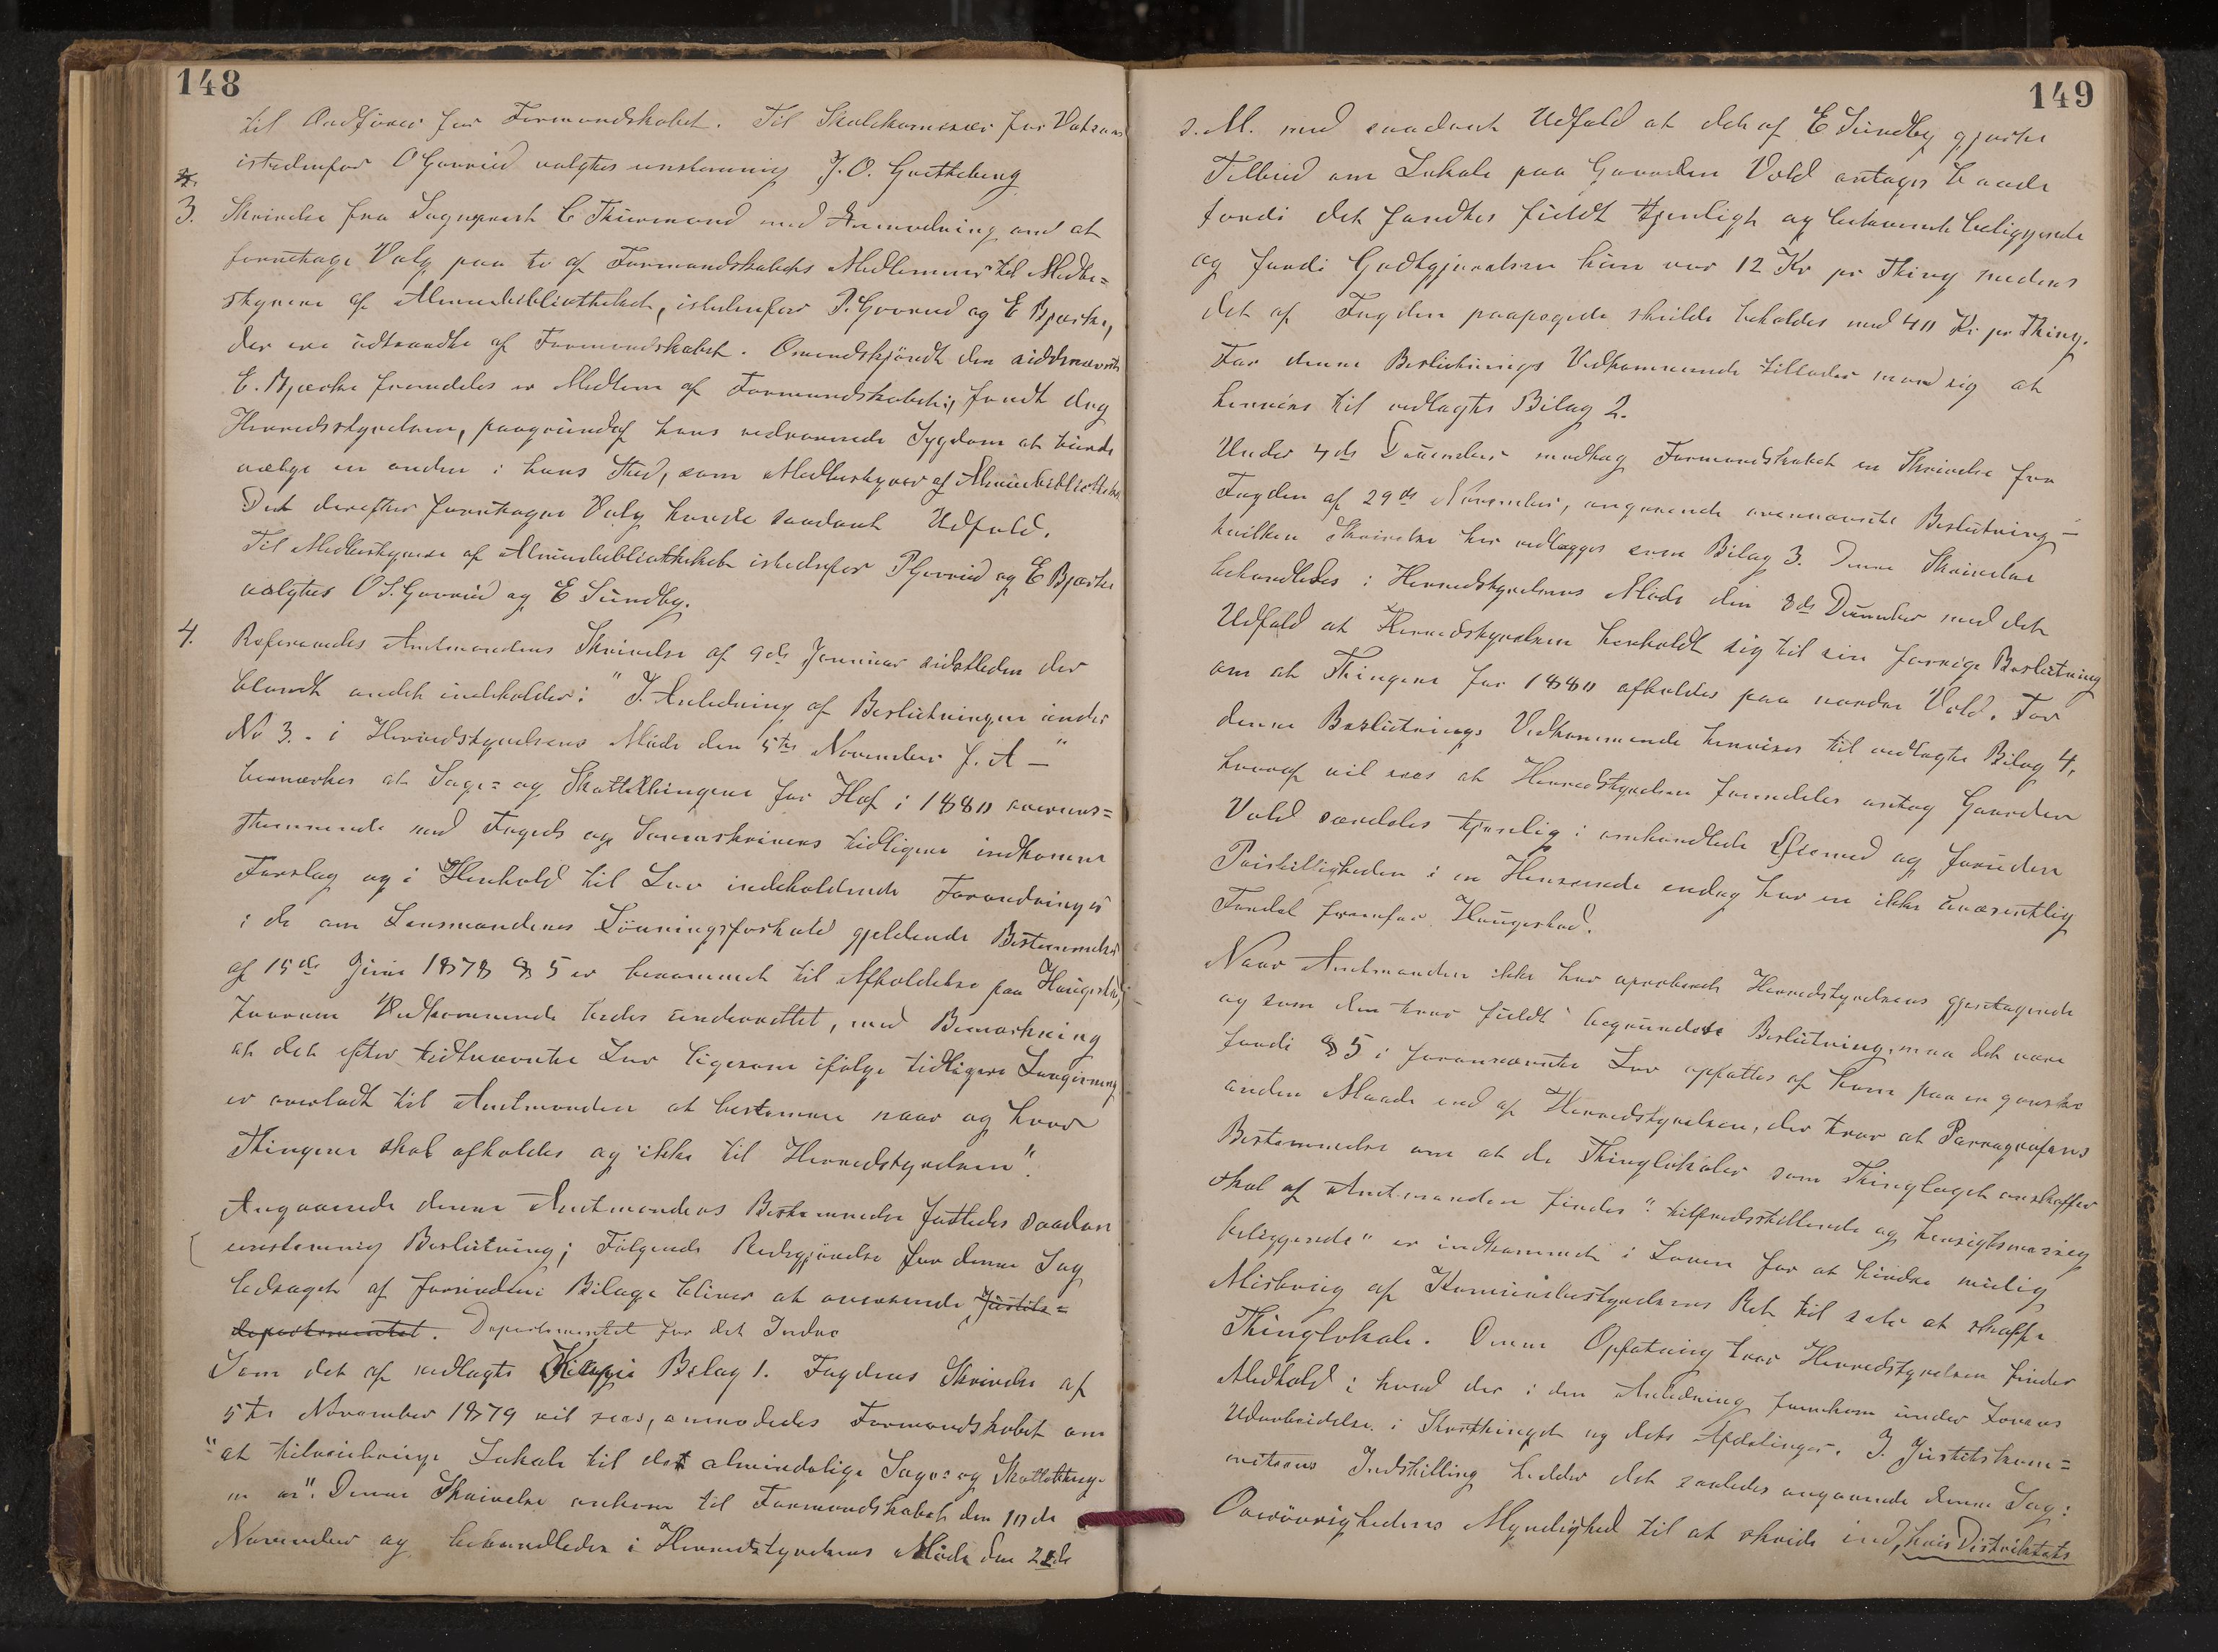 148
til Ordfører for Formandskabet. Til Skolekomsær for Vatsaas
istedenfor O Gorrud valgtes enstemmig J. O. Gutteberg
3. Skrivelse fra Sogneprest C Thurmand med Anmodning om at
foretage Valg paa to af Formandskabets Medlemmer til Medbe=
styrere af Almuebibliotheket, istedenfor P. Gorrud og E Bjerke,
der ere udtraadte af Formandskabet. Omendskjøndt den sidstnævnte
E. Bjerke fremdeles er Medlem af Formandskabet, fandt dog
Herredsstyrelsen, paagrundaf hans vedvarende Sygdom at burde
vælge en anden i hans Sted, som Medbestyrer af Almuebibliotheket
Det derefter foretagne Valg havde saadant Udfald.
Til Medbestyrere af Almuebibliotheket istedenfor P Gorrud og E Bjerke
valgtes O S. Gorrud og E Sundby.
4. Refereredes Amtmandens Skrivelse af 9de Januar sidstleden der
blandt andet indeholder: "I Anledning af Beslutningen under
No 3. i Herredstyrelsens Møde den 5te November f. A —"
bemærkes at Sage= og Skattethingene for Hof i 1880 overens=
stemmende med Fogeds og Sorenskrivers tidligere indkomne
Forslag og i Henhold til Lov indeholdende Forandringer
i de om Lensmændenes Lønningsforhold gjeldende Bestemmelser
af 15de Juni 1878 § 5 er berammet til Afholdelse paa Haugestad,
hvorom Vedkommende bedes underrettet, med Bemærkning
at det efter sidtnævnte Lov ligesom ifølge tidligere Lovgivning
er overladt til Amtmanden at bestemme naar og hvor
Thingene skal afholdes og ikke til Herredstyrelsen".
Angaaende denne Amtmandens Bestemmelse fattedes saadan
enstemmig Beslutning; Følgende Redegjørelse for denne Sag
ledsaget af fornødne Bilage bliver at oversende Justits=
departementet. Departementet for det Indre
Som det af vedlagte Bilag 1. Fogdens Skrivelse af
5te November 1879 vil sees, anmodedes Formandskabet om
"at tilveiebringe Lokale til det almindelige Sage= og Skattething
Denne Skrivelse ankom til Formandskabet den 10de
November og behandledes i Herredstyrelsens Møde den
149
s. M. med saadant Udfald at det af E Sundby gjorte
Tilbud om Lokale paa Gaarden Vold antages baade
fordi det fandtes fuldt tjenligt og bekvemt beliggende
og fordi Godtgjørelsen kun var 12 Kr pr Thing medens
det af Fogden paapegede skulde beholdes med 40 Kr pr Thing.
For denne Beslutnings Vedkommende tillader man sig at
henvise til vedlagte Bilag 2.
Under 4de December modtog Formandskabet en Skrivelse fra
Fogden af 29de November, angaaende ovennævnte Beslutning —
hvilken Skrivelse her vedlægges som Bilag 3. Denne Skrivelse
behandledes i Herredstyrelsens Møde den 8de December med det
Udfald at Herredstyrelsen henholdt sig til sin forrige Beslutning
om at Thingene for 1880 afholdes paa nordre Vold. For
denne Beslutnings Vedkommende henvises til vedlagte Bilag 4,
hvoraf vil sees at Herredstyrelsen fremdeles antog Gaarden
Vold særdeles tjenlig i omhandlede Øiemed og foruden
Prisbilligheden i en Henseende endog har en ikke uvæsentlig
Fordel fremfor Haugestad.
Naar Amtmanden ikke har approberet Herredstyrelsens gjentagende
og som den tror fuldt begrundede Beslutning, maa det være
fordi § 5 i forannævnte Lov opfattes af ham paa en ganske
anden Maade end af Herredstyrelsen, der tror at Paragrafens
Bestemmelse om at de Thinglokaler som Thinglaget anskaffer
skal af Amtmanden findes "tilfredsstillende og hensigtsmæssig
beliggende" er indkommet i Loven for at hindre mulig
Misbrug af Kommunebestyrelsens Ret til selv at skaffe
Thinglokale. Denne Opfatning tror Herredstyrelsen finder
Medhold i hvad der i den Anledning fremkom under Lovens
Udarbeidelse i Storthinget og dets Afdelinger. I Justitskom=
miteens Indstilling hedder det saaledes angaaende denne Sag:
Overøvrighedens Myndighed til at skride ind, hvis Distriktets